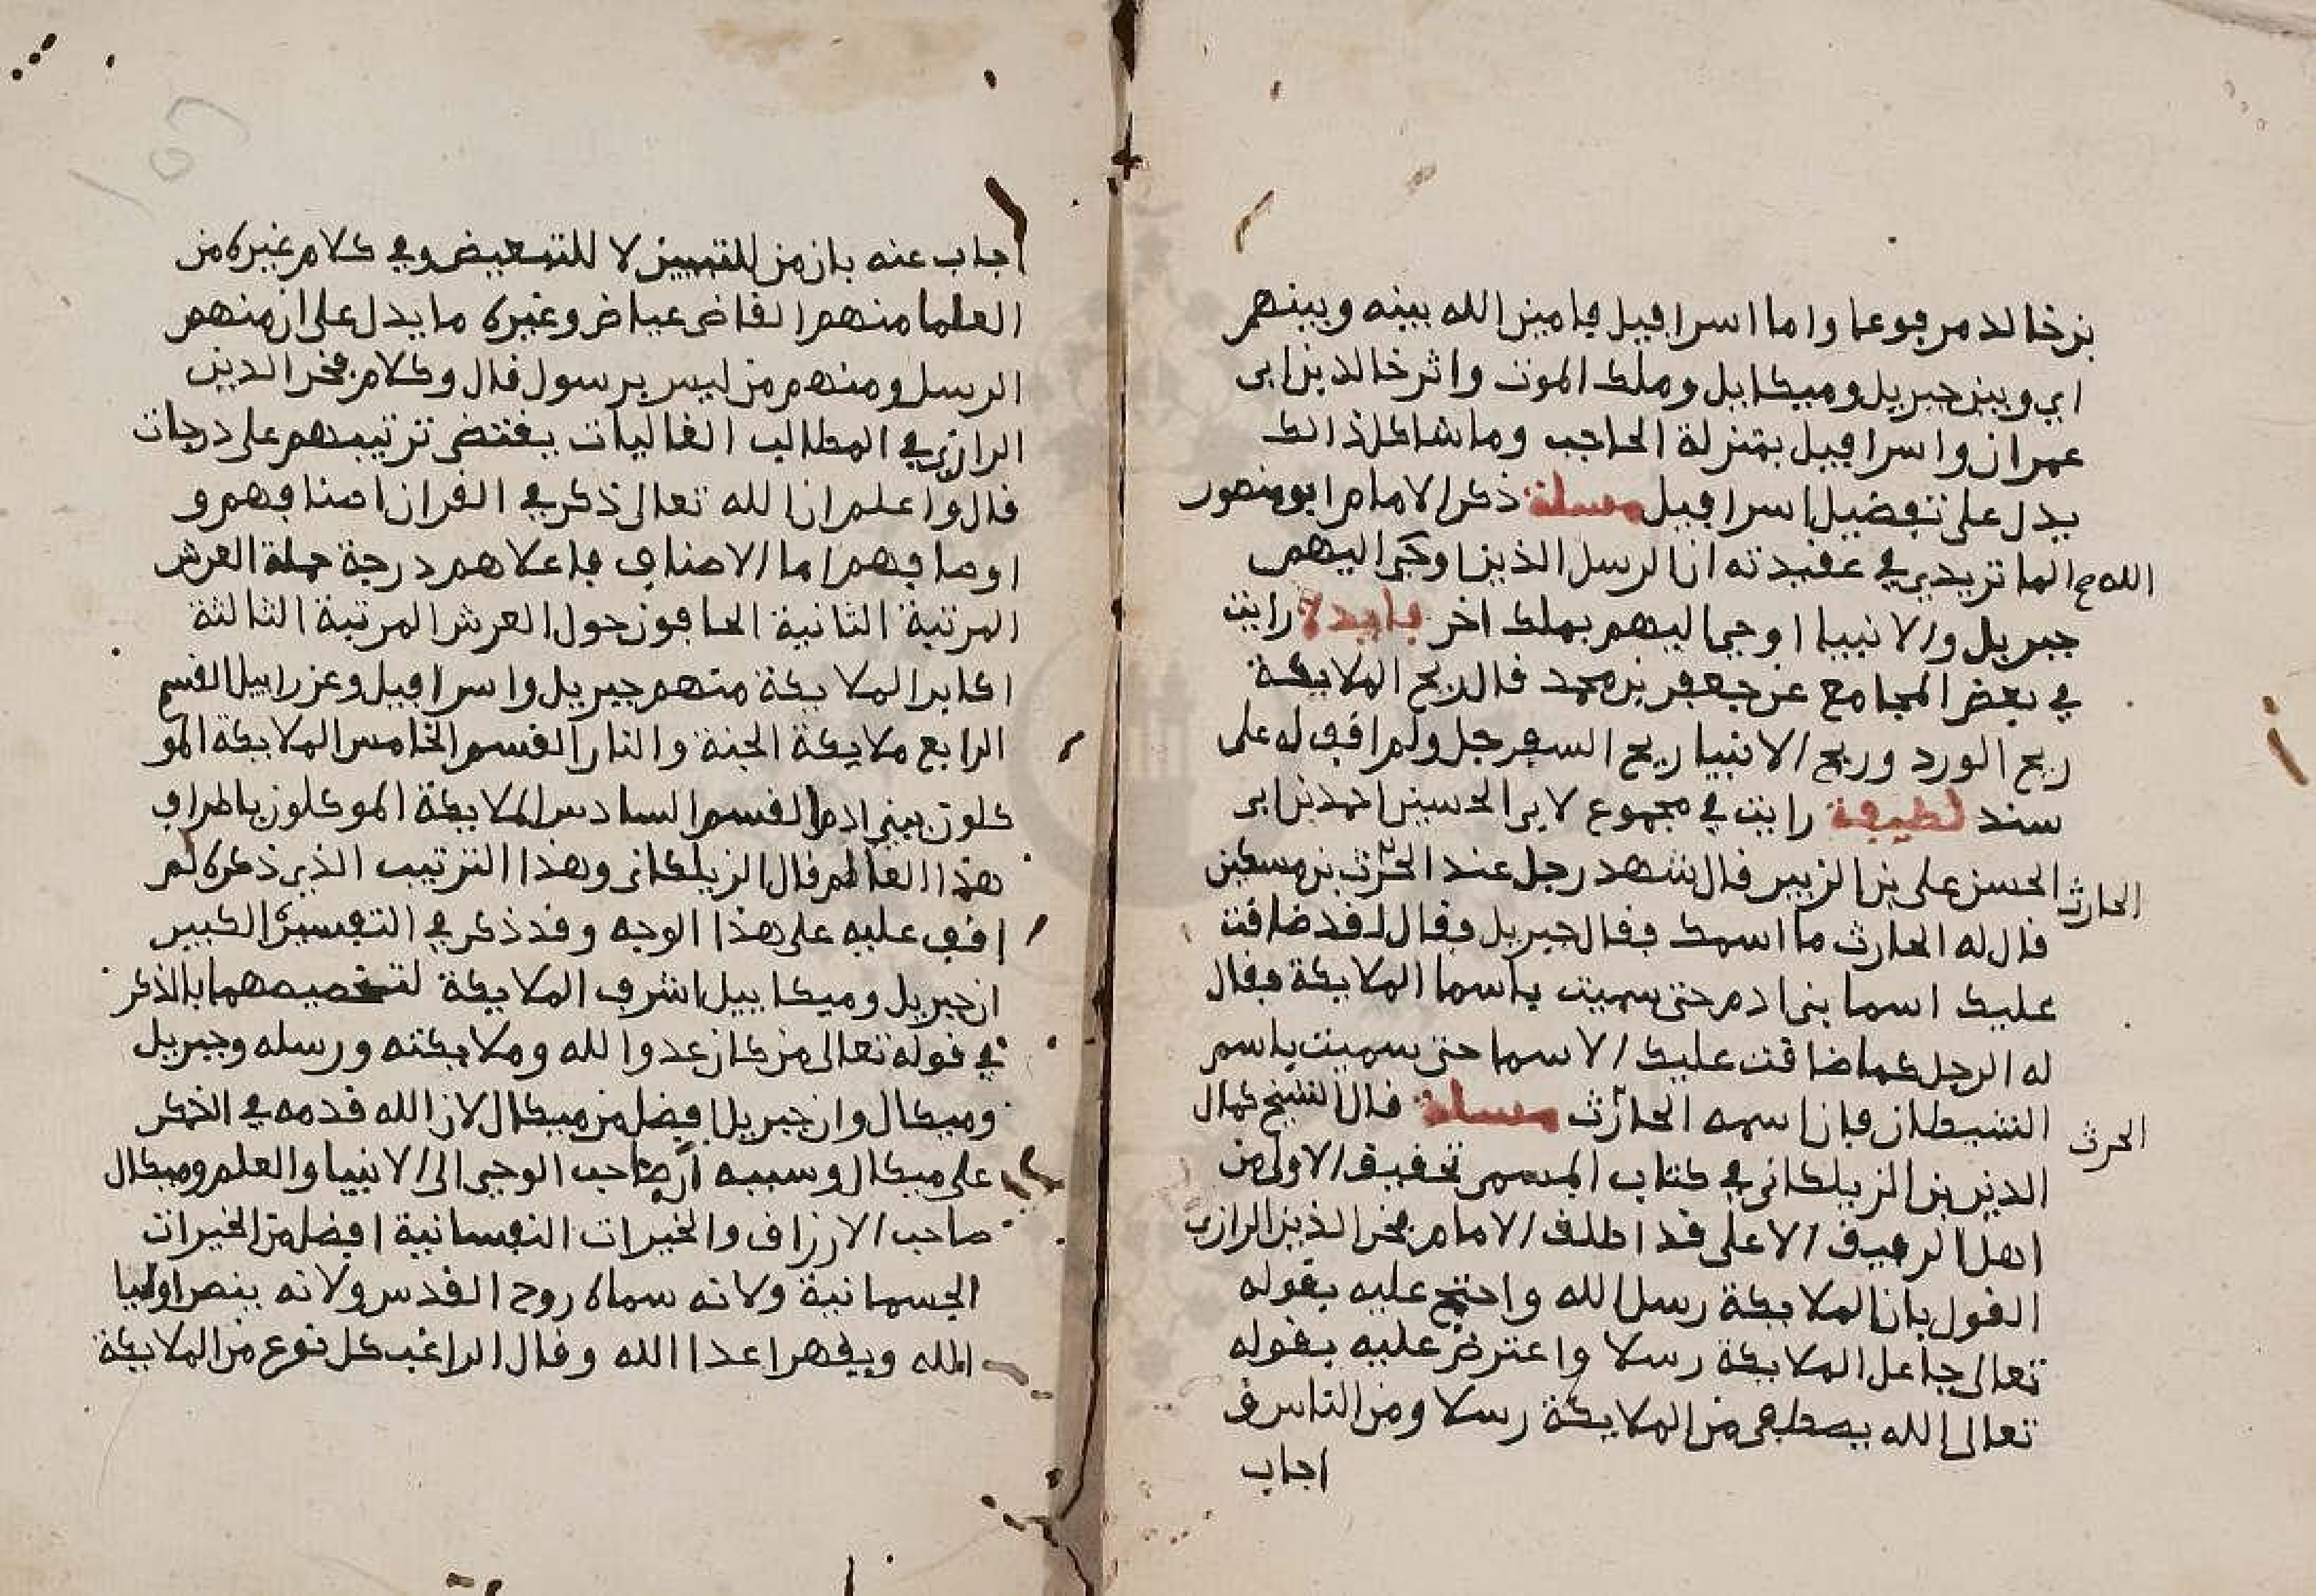 بن خالد مرفوعا واما اسرافيل فامين الله بينه وبينهم
اي وبين جبريل وميكايل وملك الموت واثر خالد بن ابى
عمران واسرافيل بمنزلة الحاجب وما شاكل ذالك
يدل على تفضيل اسرافيل مسلة ذكر الامام ابو منصور
الماتريدي في عقيدته ان الرسل الذين اوحى اليهم
الله ع
جبريل والانبيا اوحى اليهم بملك اخر فايدة رايت
في بعض المجامع عن جعفر بن محمد قال ريح الملايكة
ريح الورد وريح الانبيا ريح السفرجل ولم اقف له على
سند لطيفة رايت في مجموع لابى الحسين احمد بن ابى
الحسن على بن الزبير قال شهد رجل عند الحرث بن مسكين
الحارث
قال له الحارث ما اسمك فقال جبريل فقال لقد ضاقت
عليك اسما بنى ادم حتى سميت باسما الملايكة فقال
له الرجل كما ضاقت عليك الاسما حتى سميت باسم
الشيطان فان اسمه الحارث مسلة قال الشيخ كمال
الحرث
الدين بن الزملكانى في كتاب المسمى تحقيق الاولى من
اهل الرفيق الاعلى قد اطلق الامام فخر الدين الرازى
القول بان الملايكة رسل الله واحتج عليه بقوله
تعالى جاعل الملايكة رسلا واعترض عليه بقوله
تعالى الله يصطفى من الملايكة رسلا ومن الناس و
اجاب
اجاب عنه بان من للتبيين لا للتبعيض وفي كلام غيره من
العلما منهم القاضى عياض وغيره ما يدل على ان منهم
الرسل ومنهم من ليس برسول قال وكلام فخر الدين
الرازي في المطالب العاليات يقتضى ترتيبهم على درجات
قال واعلم ان الله تعالى ذكر في القران اصنافهم و
اوصافهم اما الاصناف فاعلاهم درجة حملة العرش
المرتبة الثانية الحافون حول العرش المرتبة الثالثة
اكابر الملايكة منهم جبريل واسرافيل وعزراييل القسم
الرابع ملايكة الجنة والنار القسم الخامس الملايكة المو
كلون ببنى ادم القسم السادس الملايكة الموكلون باطراف
هذا العالم قال الزملكانى وهذا الترتيب الذى ذكره لم
اقف عليه على هذا الوجه وقد ذكر في التفسير الكبير
ان جبريل وميكاييل اشرف الملايكة لتخصيصهما بالذكر
في قوله تعالى من كان عدوا لله وملايكته ورسله وجبريل
وميكال وان جبريل افضل من ميكال لان الله قدمه في الذكر
على ميكال وسببه ان صاحب الوحى الى الانبيا والعلم وميكال
صاحب الارزاق والخيرات النفسانية افضل من الخيرات
الجسمانية ولانه سماه روح القدس ولانه ينصر اوليا
الله ويقهر اعدا الله وقال الراغب كل نوع من الملايكة